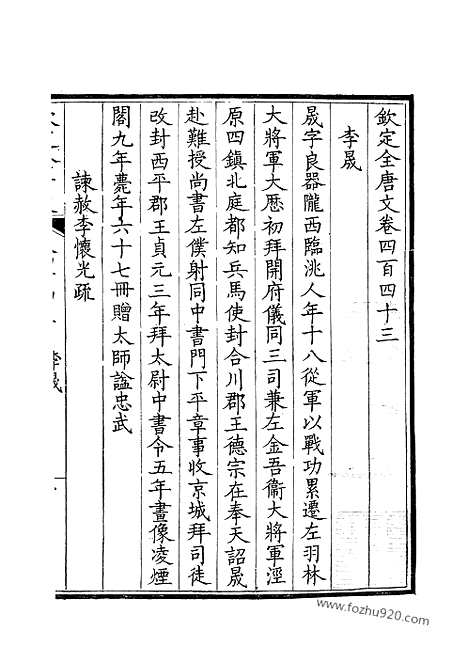 欽定全唐文卷四百四十三
李晟
晟字良器隴西臨洮人年十八從軍以戰功累遷左羽林
大將軍大厯初拜開府儀同三司兼左金吾衞大將軍涇
原四鎮北庭都知兵馬使封合川郡王德宗在奉天詔晟
赴難授尚書左僕射同中書門下平章事收京城拜司徒
改封西平郡王貞元三年拜太尉中書令五年畫像凌煙
閣九年薨年六十七冊贈太師諡忠武
諫赦李懷光疏
李晟
www.fozhu920.com